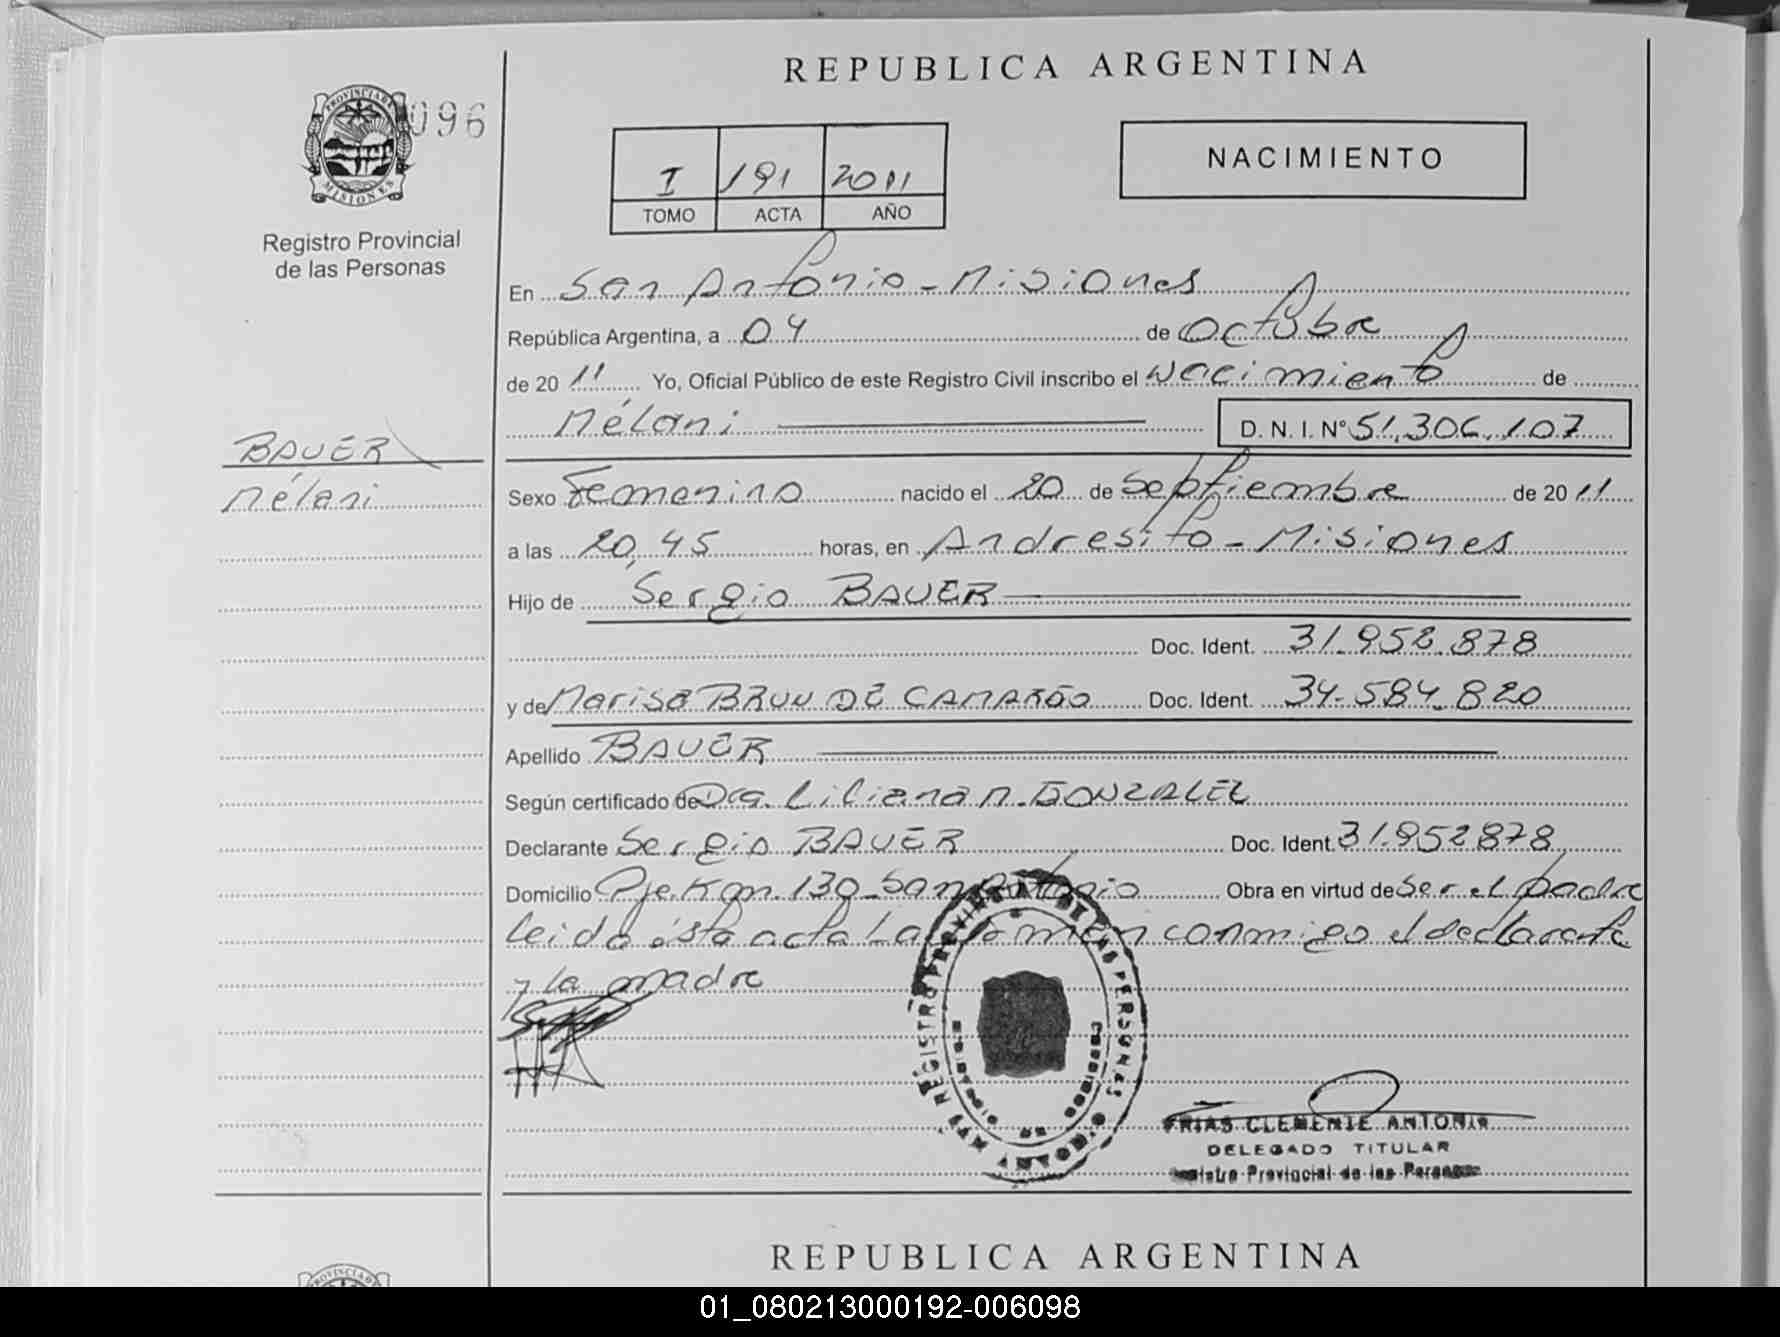 REPUBLICA ARGENTINA
PROVINCIA DE
MISIONES
096
Registro Provincial
de las Personas
I 191 2011
TOMO ACTA AÑO
NACIMIENTO
En San Antonio - Misiones
República Argentina, a 04 de Octubre
de 20 11 Yo, Oficial Público de este Registro Civil inscribo el Nacimiento de
Mélani D. N. I. N° 51.306.107
BAUER
Mélani
Sexo Femenino nacido el 20 de Septiembre de 20 11
a las 20,45 horas, en Andresito - Misiones
Hijo de Sergio BAUER
Doc. Ident. 31.952.878
y de Marisa BRUN DE CAMARGO Doc. Ident. 34.584.820
Apellido BAUER
Según certificado de Dra. Liliana M. GONZALEZ
Declarante Sergio BAUER Doc. Ident. 31.952878
Domicilio Pje. Km. 130 - San Antonio Obra en virtud de Ser el padre
leida ésta acta La conmigo el declarante
y La madre
REGISTRO PROVINCIAL DE LAS PERSONAS
FRIAS CLEMENTE ANTONIO
DELEGADO TITULAR
Registro Provincial de las Personas
REPUBLICA ARGENTINA
01_080213000192-006098